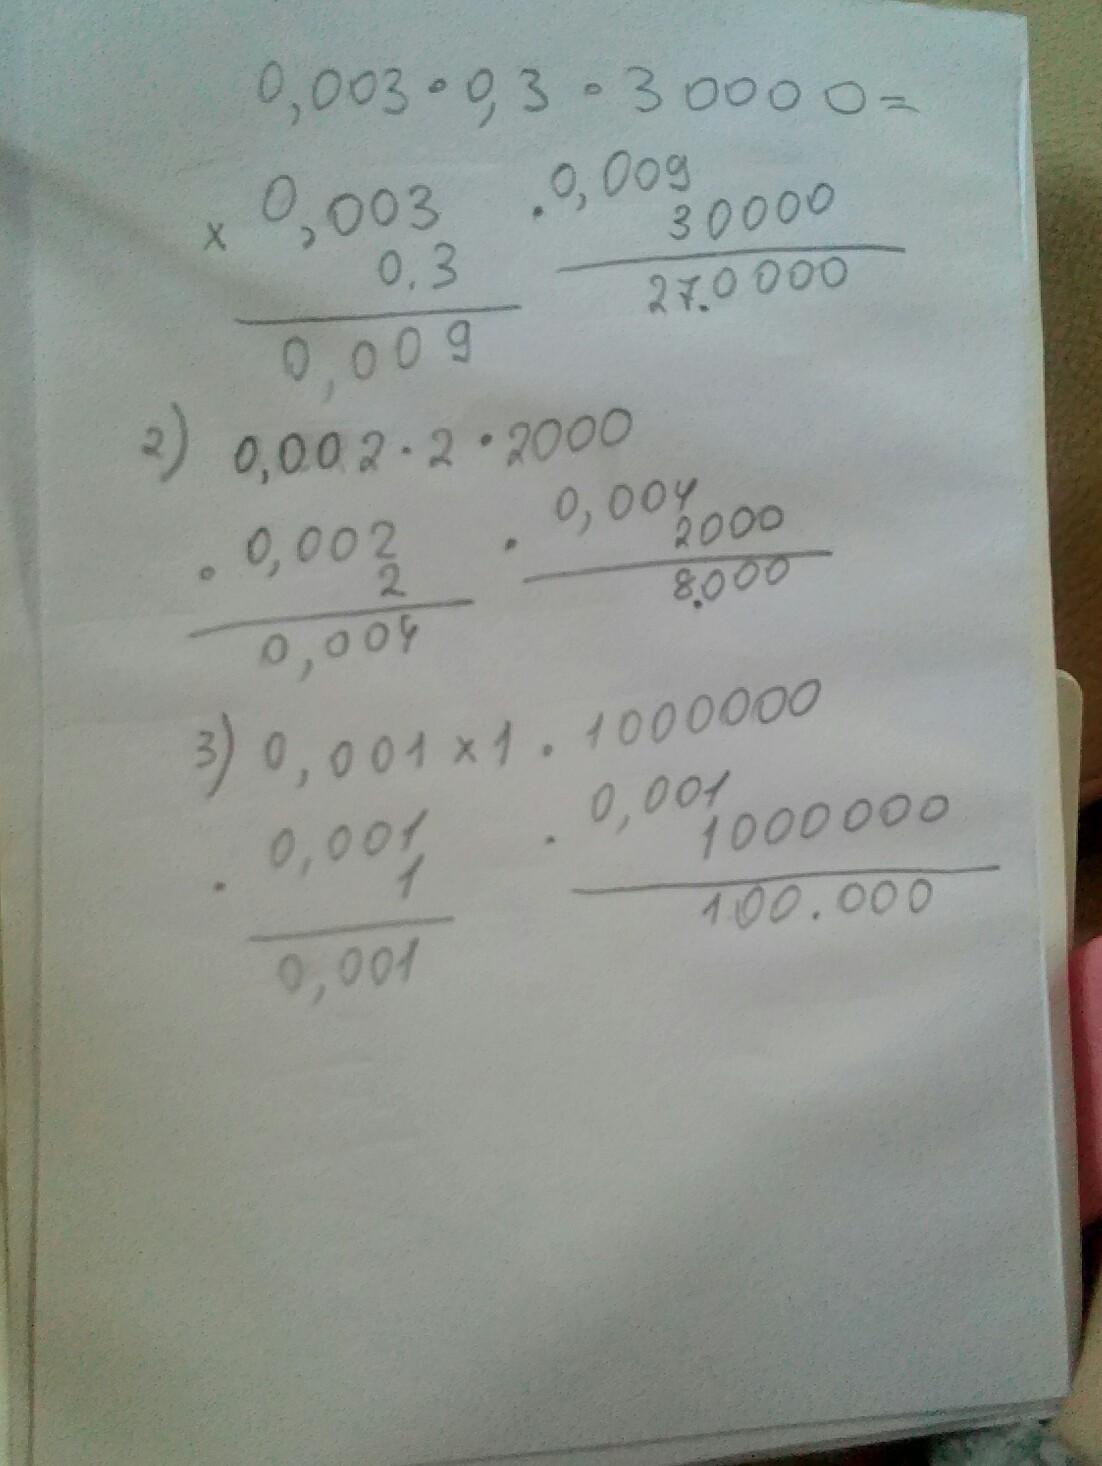 0,003 · 0,3 · 30000=
x 0,003 . 0,009
0.3 30000
0,009 27.0000
2) 0,002 · 2 · 2000
. 0,002 . 0,004
2 2000
0,004 8.000
3) 0,001 x 1 . 1000000
. 0,001 . 0,001
1 1000000
0,001 100.000